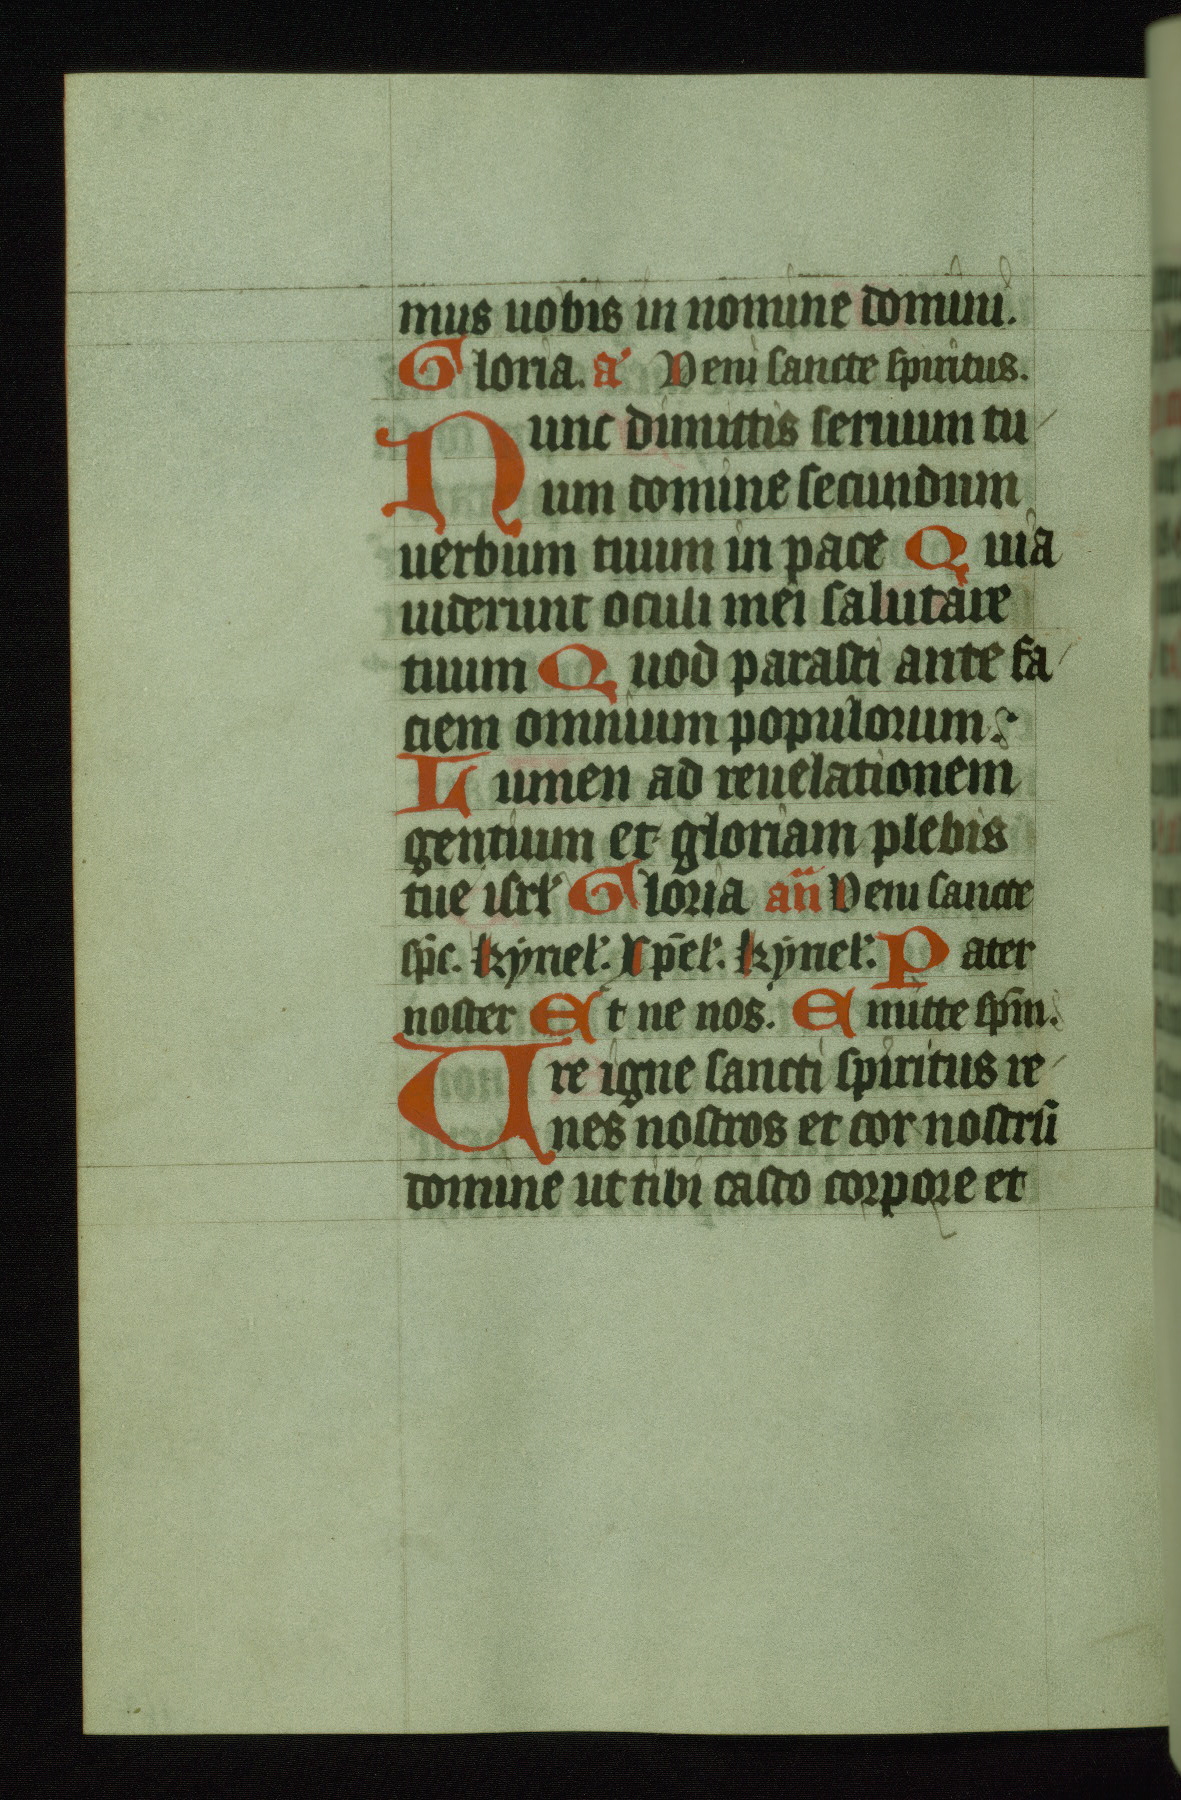 mus uobis in nomine domini.
Gloria. a͛ Veni sancte spiritus.
Nunc dimittis seruum tu
um domine secundum
uerbum tuum in pace Quia
uiderunt oculi mei salutare
tuum Quod parasti ante fa
ciem omnium populorum.
Lumen ad reuelationem
gentium et gloriam plebis
tue isrl' Gloria an̄ Veni sancte
sp̄c. kyriel'. xp̄el'. kyriel'. Pater
noster Et ne nos. Emitte sp̄m.
Ure igne sancti spiritus re
nes nostros et cor nostrū
domine ut tibi casto corpore et